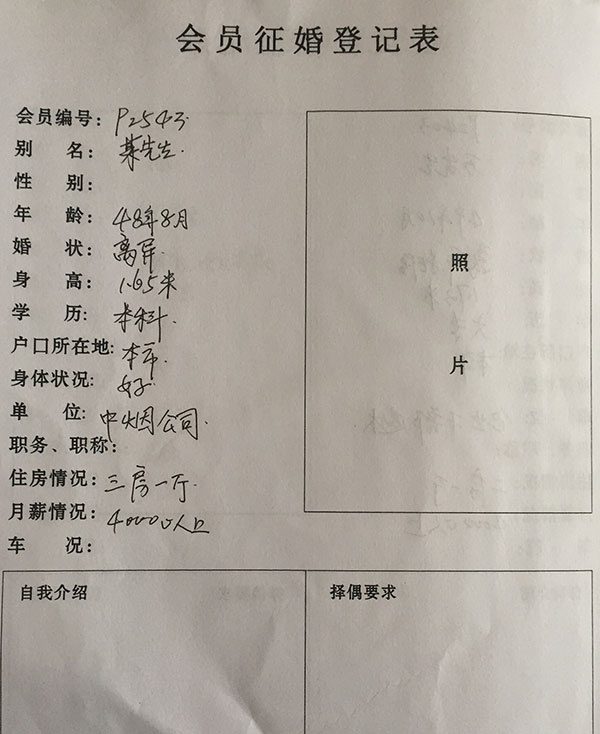 会员征婚登记表
会员编号：P2543
别 名：某先生.
性 别：
年 龄：48年8月
婚 状：离异.
身 高：1.65米
学 历：本科.
户口所在地：本市.
身体状况：好
单 位：中烟公司.
职务、职称：
住房情况：三房一厅.
月薪情况：4000以上
车 况：
照
片
自我介绍
择偶要求